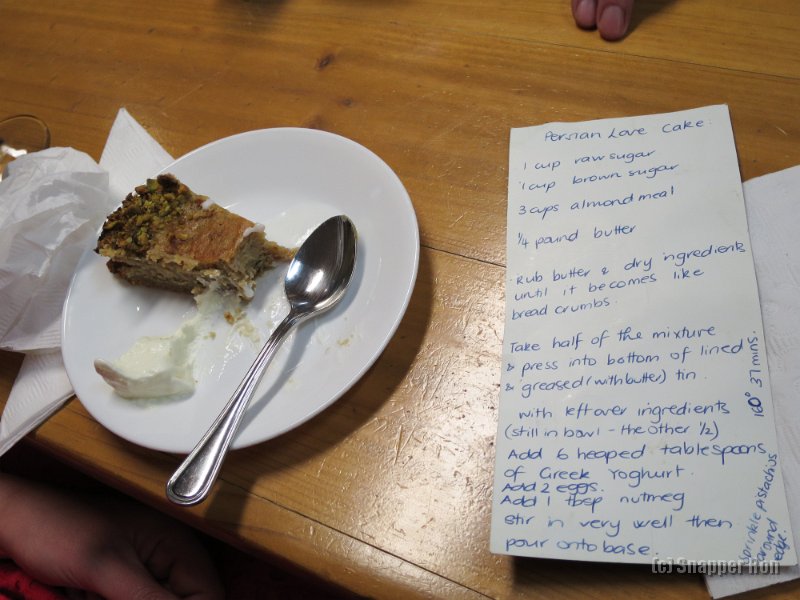 Persian Love Cake:
1 cup raw sugar
1 cup brown sugar
3 cups almond meal
1/4 pound butter
Rub butter & dry ingredients
until it becomes like
bread crumbs.
Take half of the mixture
& press into bottom of lined
& greased (with butter) tin.
with left over ingredients
(still in bowl - the other 1/2)
Add 6 heaped tablespoons
of Greek Yoghurt.
Add 2 eggs.
Add 1 tbsp nutmeg
stir in very well then
pour onto base.
160° 37 mins.
sprinkle pistachios
around
edge.
(c) Snapper Ron